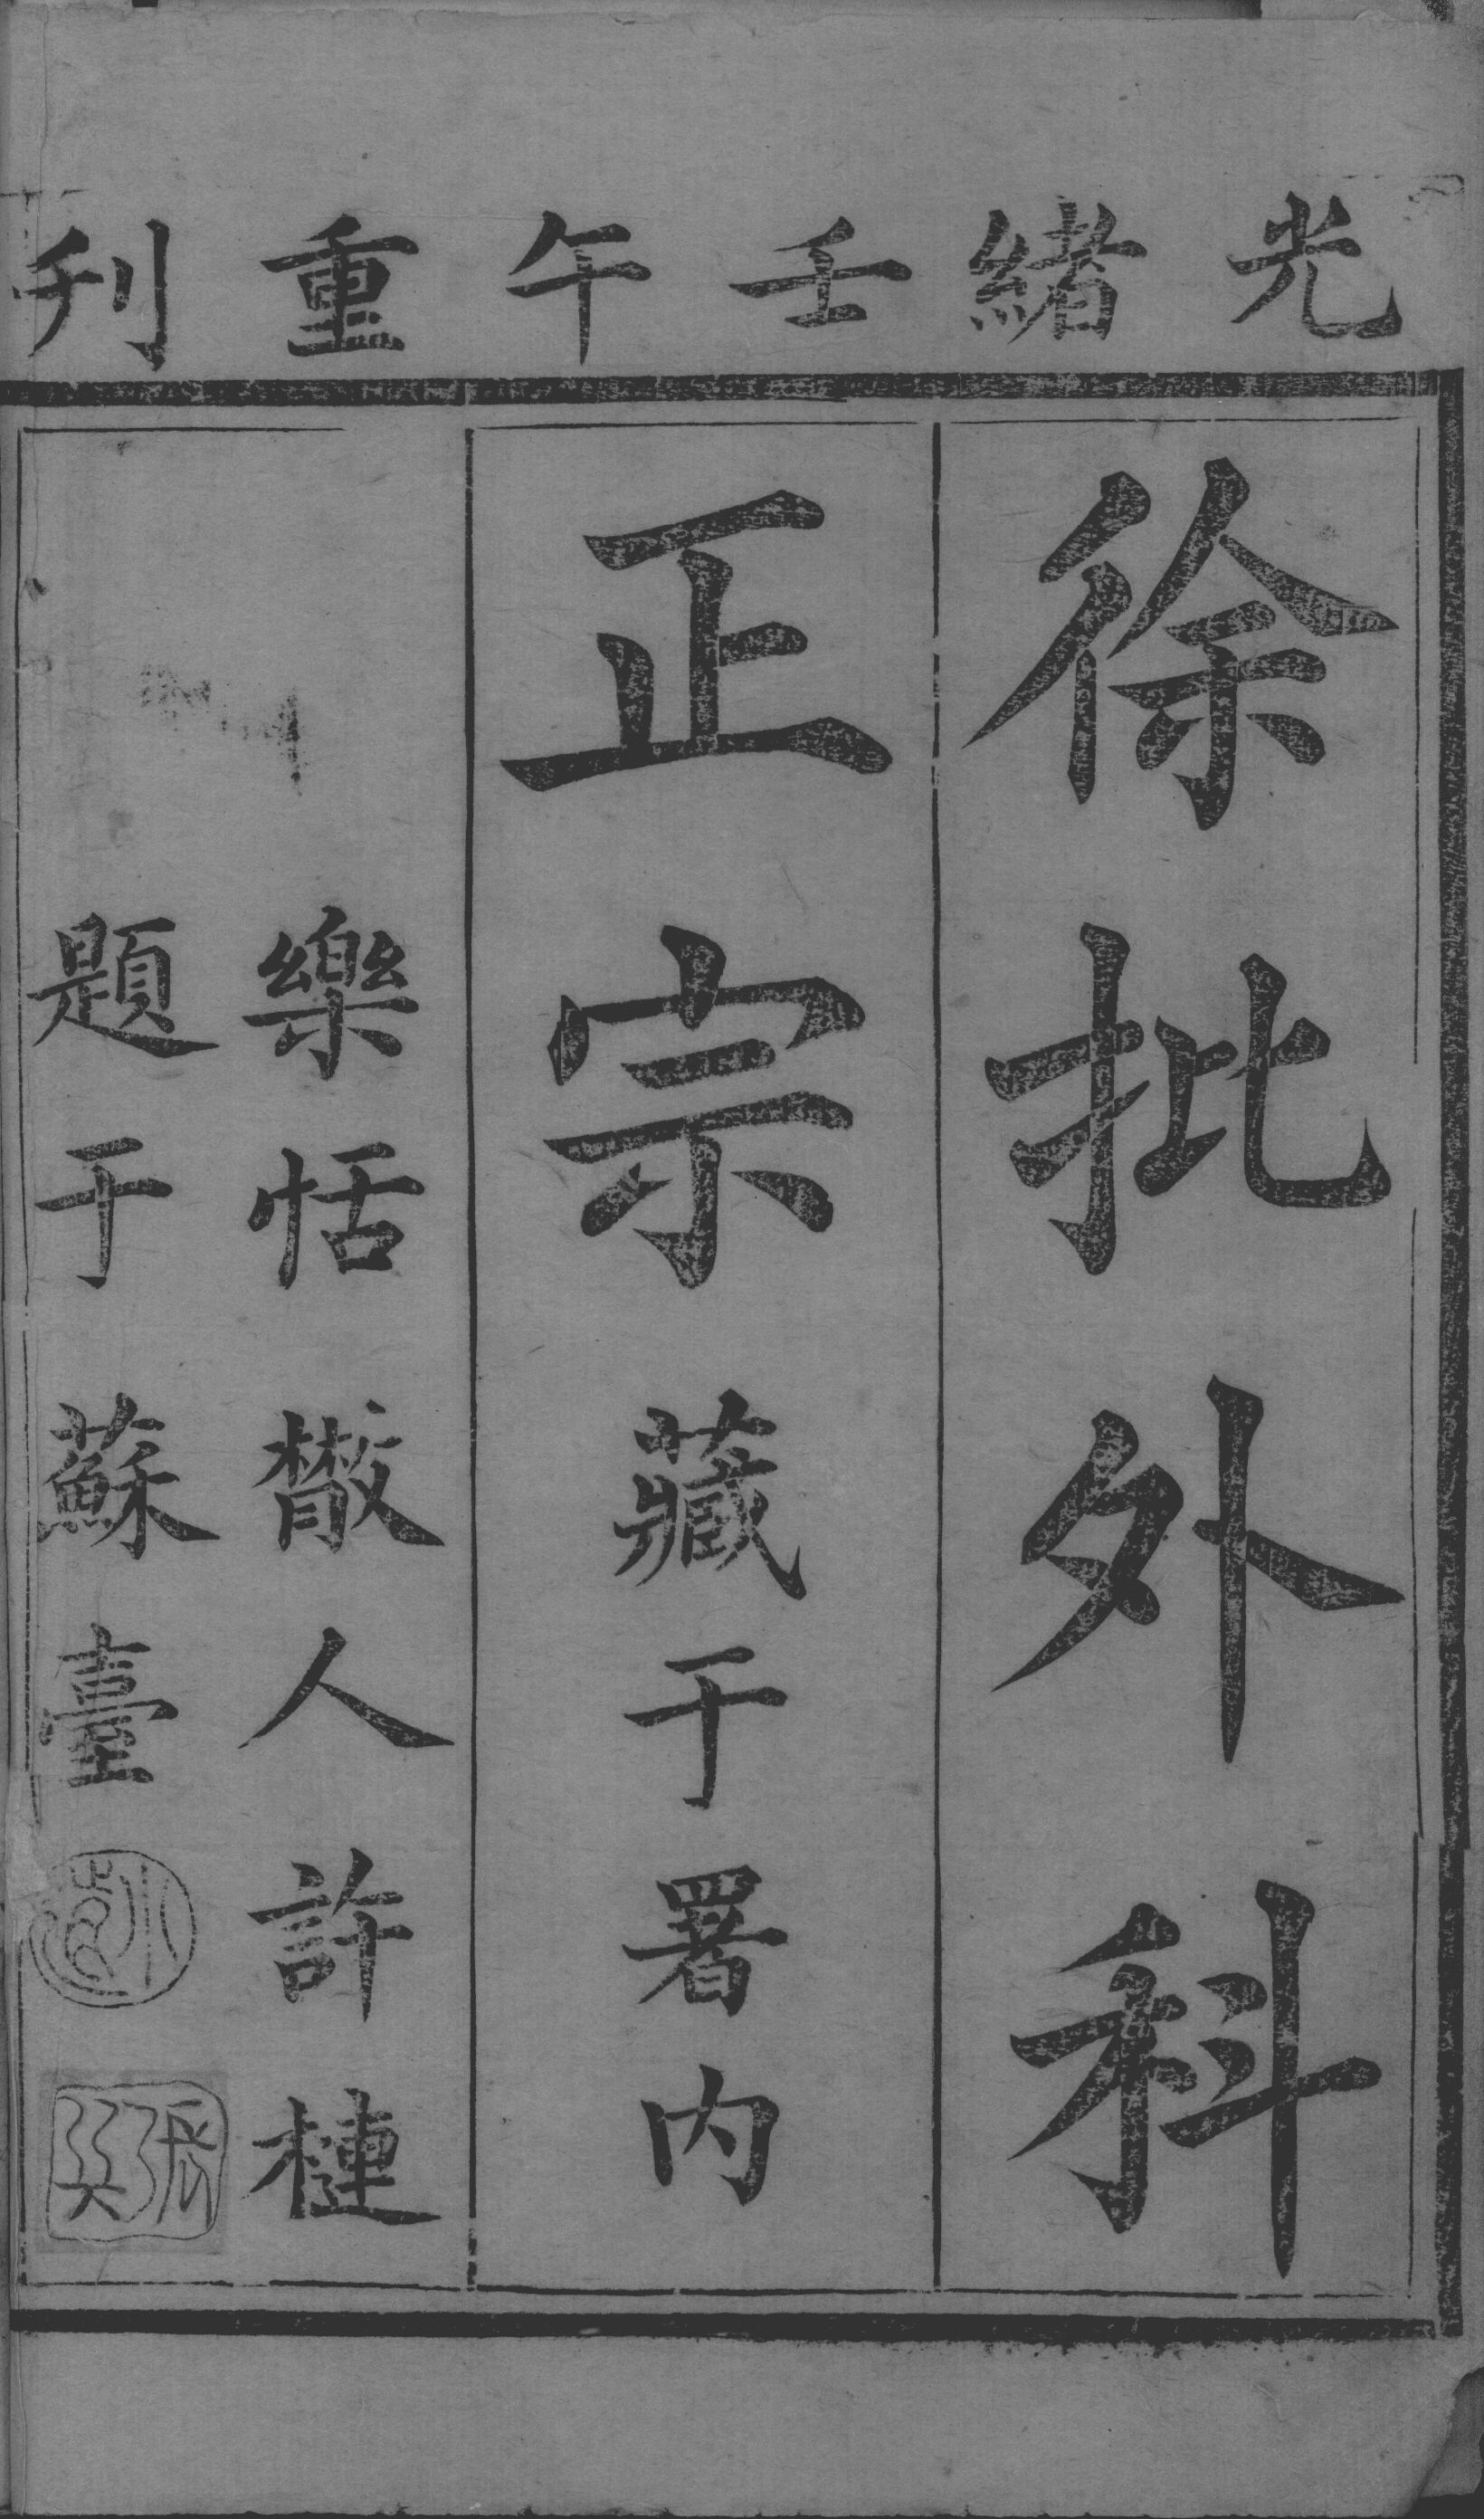 光緒壬午重刊
徐批外科
正宗藏于署內
樂恬散人許槤
題于蘇臺